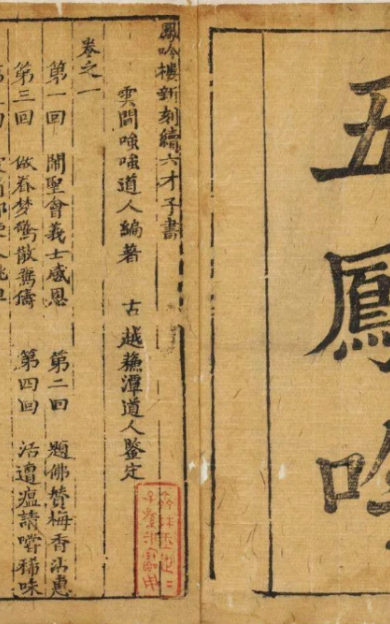 五鳳吟
鳳吟樓新刻續六才子書
雲間嗤嗤道人編著 古越蘓潭道人鑒定
卷之一
第一回 鬧聖會義士感恩 第二回 題佛贊梅香沾惠
第三回 做春梦驚散鴛儔 第四回 活遭瘟請嘗稀味